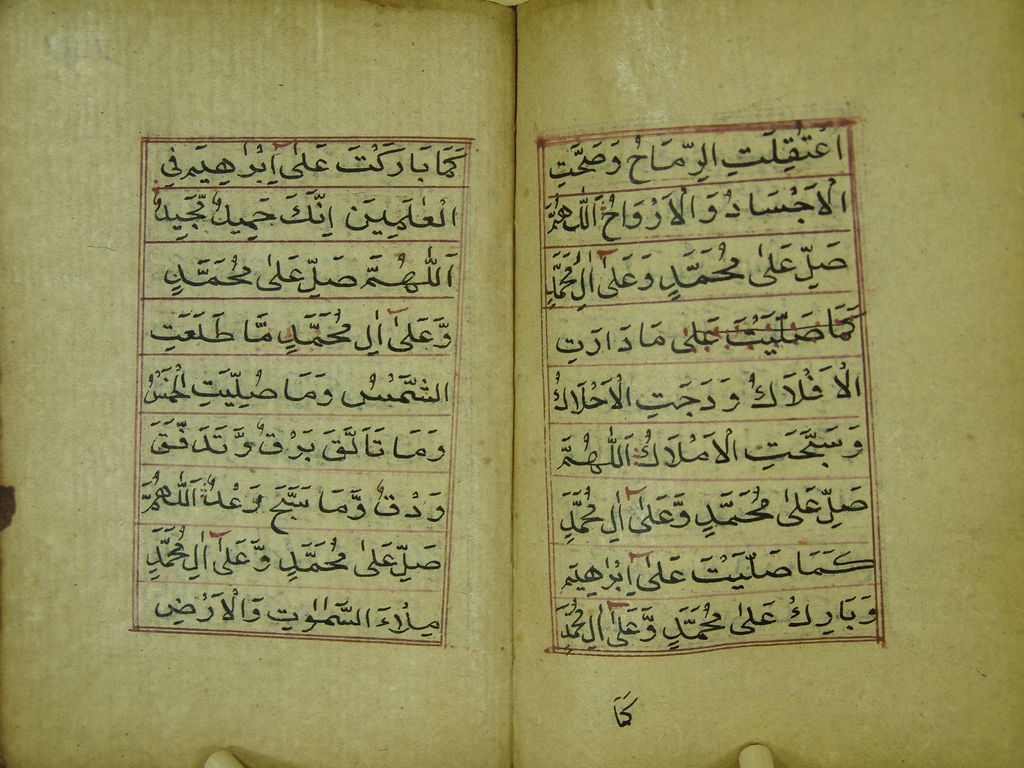 اعْتَقَلَتِ الرِّمَاحُ وَصَحَّتِ
الْاَجْسَادُ وَالْاَرْوَاحُ اَللّٰهُمَّ
صَلِّ عَلٰى مُحَمَّدٍ وَعَلٰٓى اٰلِ مُحَمَّدٍ
كَمَا صَلَّيْتَ عَلٰى مَا دَارَتِ
الْاَفْلَاكُ وَدَجَتِ الْاَحْلَاكُ
وَسَبَّحَتِ الْاَمْلَاكُ اَللّٰهُمَّ
صَلِّ عَلٰى مُحَمَّدٍ وَّعَلٰٓى اٰلِ مُحَمَّدٍ
كَمَا صَلَّيْتَ عَلٰٓى اِبْرٰهِيْمَ
وَبَارِكْ عَلٰى مُحَمَّدٍ وَّعَلٰٓى اٰلِ مُحَمَّدٍ
كَمَا
كَمَا بَارَكْتَ عَلٰٓى اِبْرٰهِيْمَ فِى
الْعٰلَمِيْنَ اِنَّكَ حَمِيْدٌ مَّجِيْدٌ
اَللّٰهُمَّ صَلِّ عَلٰى مُحَمَّدٍ
وَّعَلٰٓى اٰلِ مُحَمَّدٍ مَّا طَلَعَتِ
الشَّمْسُ وَمَا صُلِّيَتِ الْخَمْسُ
وَمَا تَاَلَّقَ بَرْقٌ وَّتَدَفَّقَ
وَدْقٌ وَّمَا سَبَّحَ رَعْدٌ اَللّٰهُمَّ
صَلِّ عَلٰى مُحَمَّدٍ وَّعَلٰٓى اٰلِ مُحَمَّدٍ
مِلْاَءَ السَّمٰوٰتِ وَالْاَرْضِ